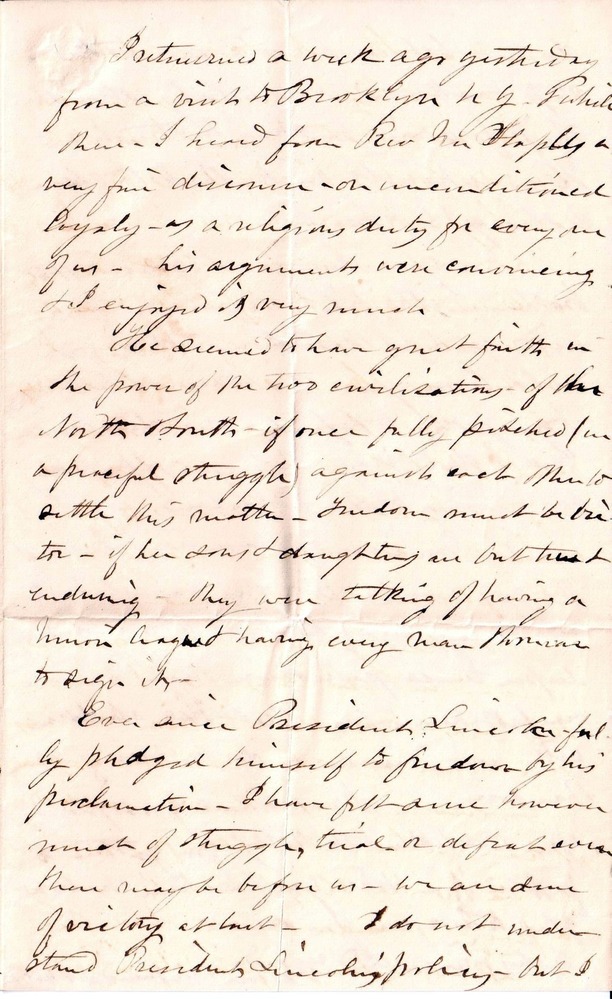 I returned a week ago yesterday
from a visit to Brooklyn N Y - While
there - I heard from Rev Mr Staples a
very fine discourse - on unconditioned
loyalty - as a religious duty for every one
of us - his arguments were convincing -
& I enjoyed it very much
He seemed to have great faith in
the power of the two civilisations - of the
North & South - if once fully pitched (in
a peaceful struggle) against each other to
settle this matter - Freedom must be vic-
tor - if her sons & daughters are but
enduring - they were talking of having a
Union League & having every man & woman
to sign it -
Ever since President Lincoln ful-
ly pledged himself to freedom by his
proclamation - I have felt sure however
much of struggle, trial or defeat even
there may be before us - we are sure
of victory at last - I do not under-
stand President Lincoln's policy - but I